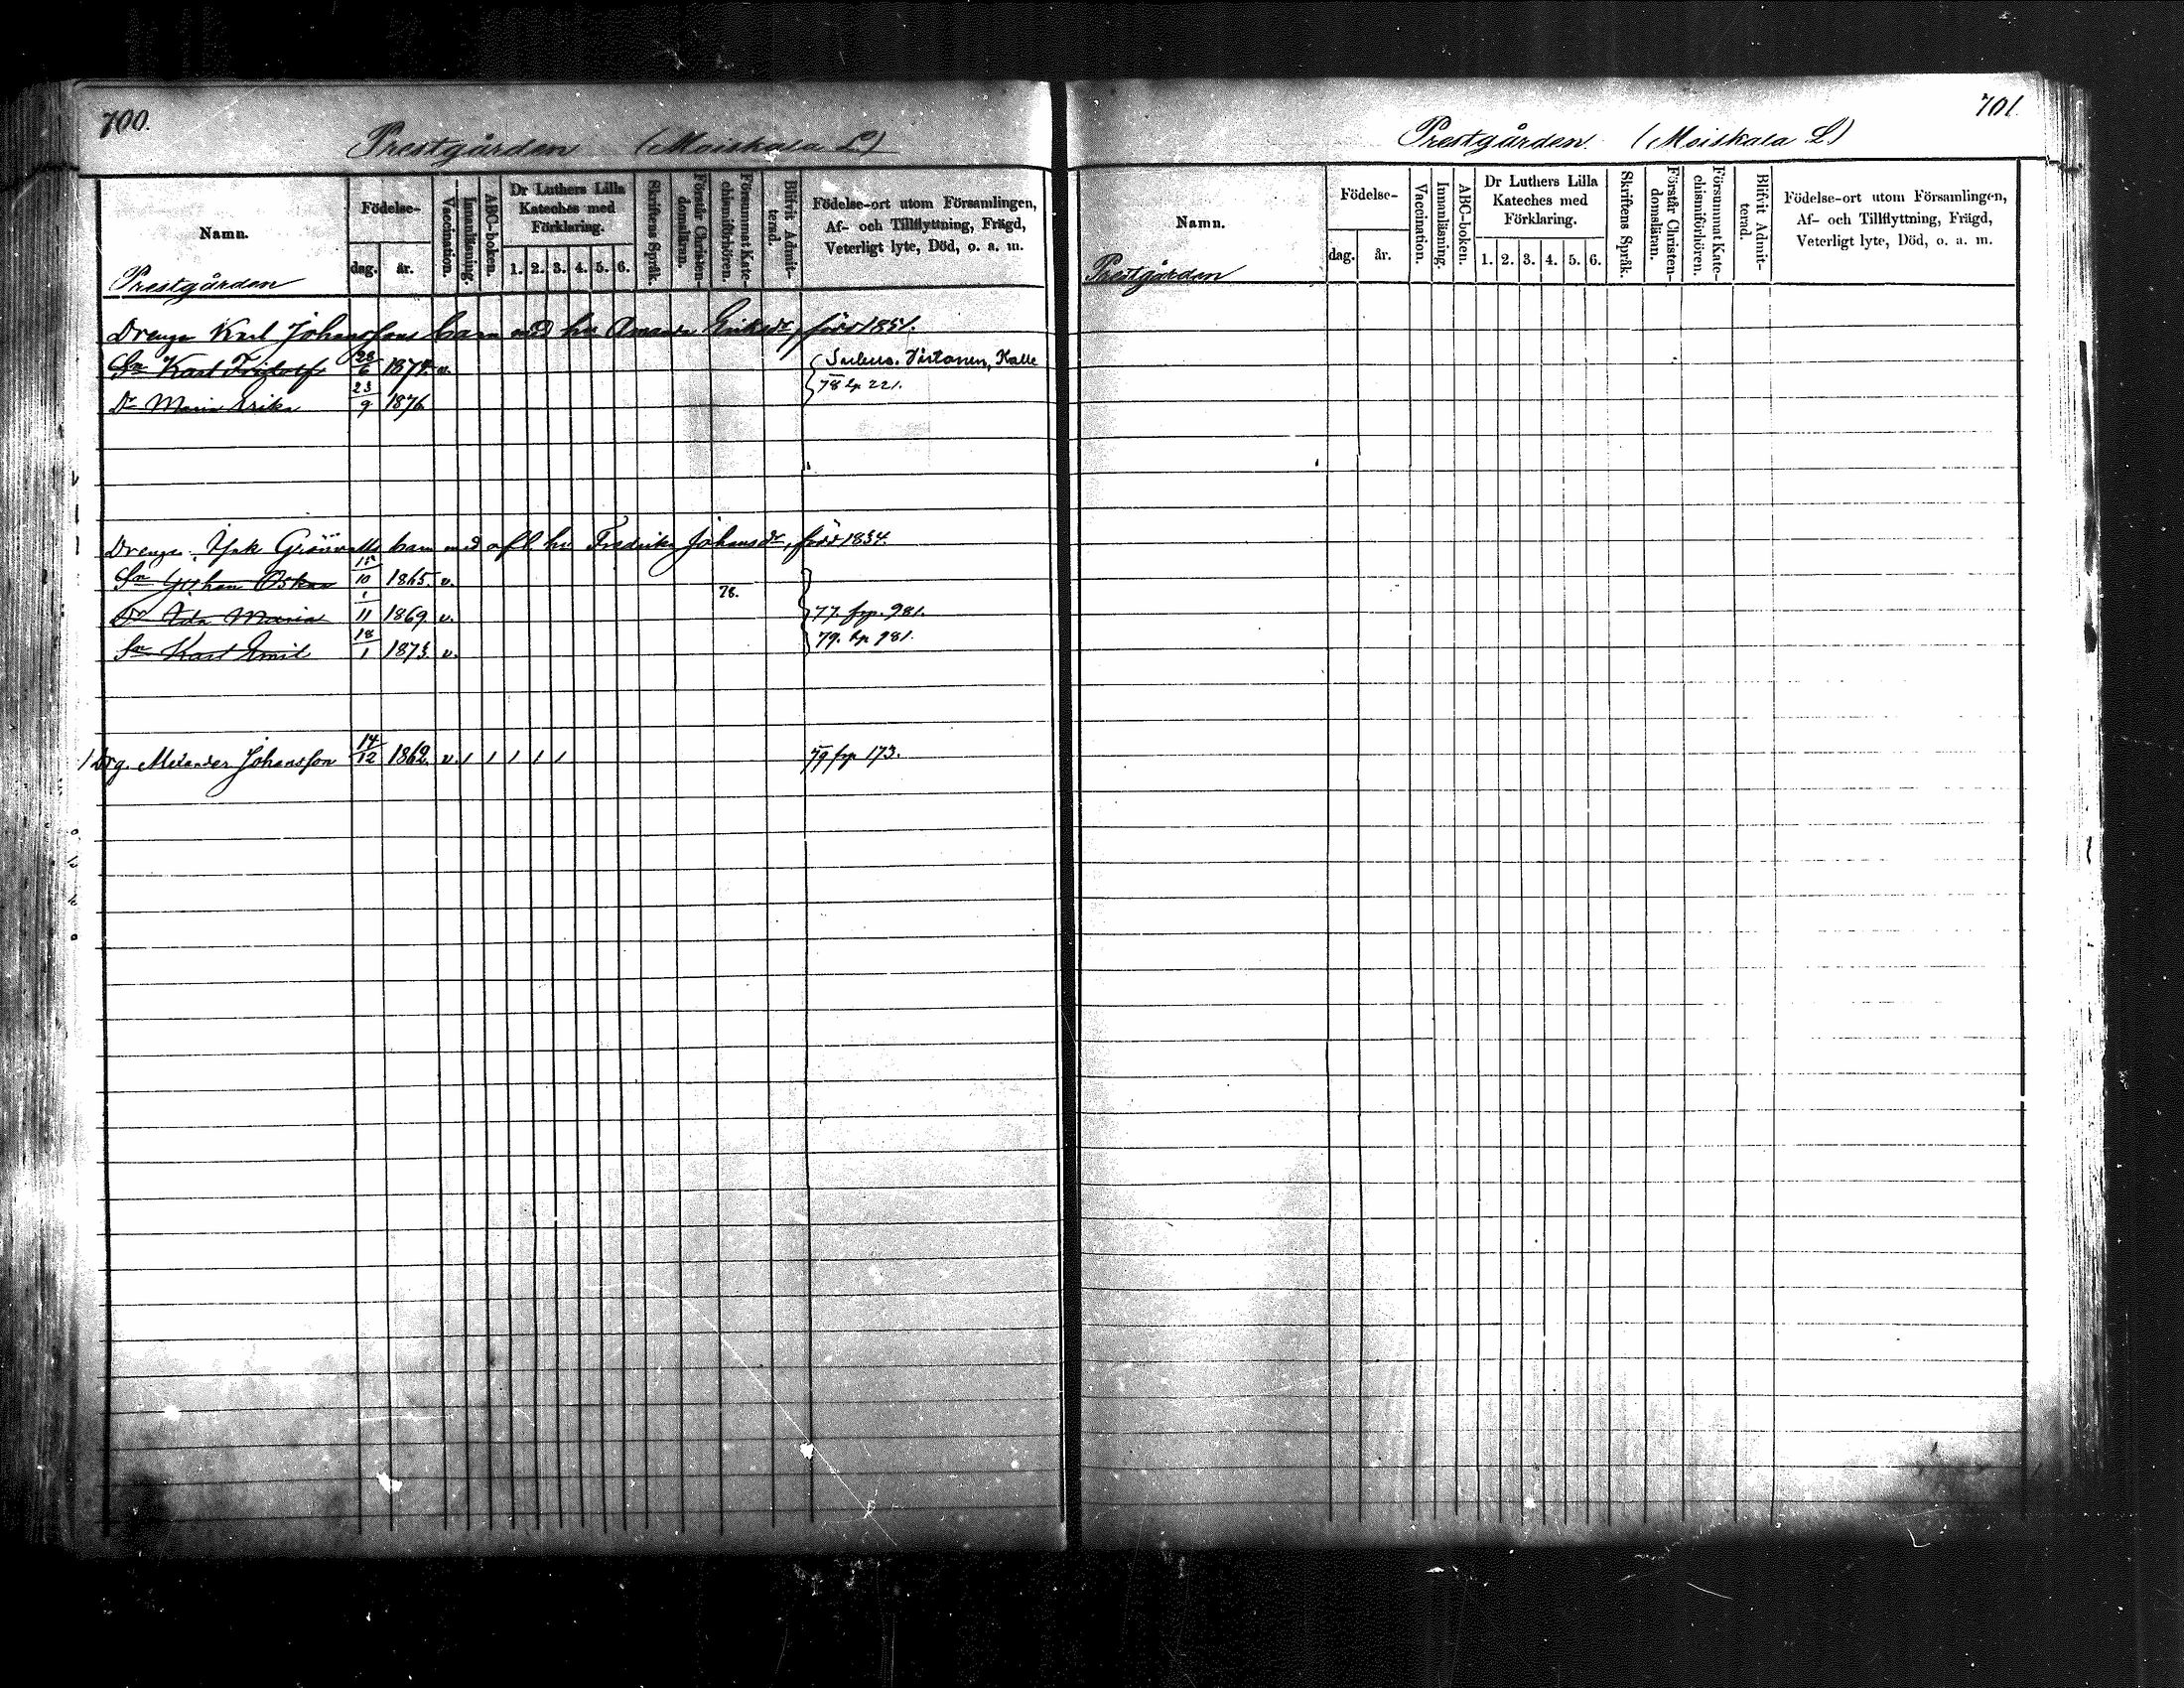 700.
Prestgården (Moiskala L)
Namn.
Födelse-
dag. år.
Vaccination.
Innanläsning.
ABC-boken.
Dr Luthers Lilla
Kateches med
Förklaring.
1. 2. 3. 4. 5. 6.
Skriftens Språk.
Förstår Christen-
domsläran.
Försummat Kate-
chismiförhören.
Blifvit Admit-
terad.
Födelse-ort utom Församlingen,
Af- och Tillflyttning, Frägd,
Veterligt lyte, Död, o. a. m.
Prestgården
Drenge Karl Johanssons barn med hu Amanda Eriksdr, född 1851.
Sn Karl Fridolf 28/6 1874. v. Virtanen, Kalle
Dr Maria Erika 23/9 1876 78 lp 221.
Drenge Grönvalls barn med afl. hu Fredrika Johansdr, född 1834.
Sn Johan Oskar 15/10 1865. v.
78.
Dr Ida Maria 1/11 1869 v. 77. frp. 981.
Sn Karl Emil 18/1 1873. v. 79. lp 981.
1 Drg. Alexander Johansson 14/12 1862. v. 1 1 1 1 1 79 frp 173.
701.
Prestgården. (Moiskala L)
Namn.
Födelse-
dag. år.
Vaccination.
Innanläsning.
ABC-boken.
Dr Luthers Lilla
Kateches med
Förklaring.
1. 2. 3. 4. 5. 6.
Skriftens Språk.
Förstår Christen-
domsläran.
Försummat Kate-
chismiförhören.
Blifvit Admit-
terad.
Födelse-ort utom Församlingen,
Af- och Tillflyttning, Frägd,
Veterligt lyte, Död, o. a. m.
Prestgården